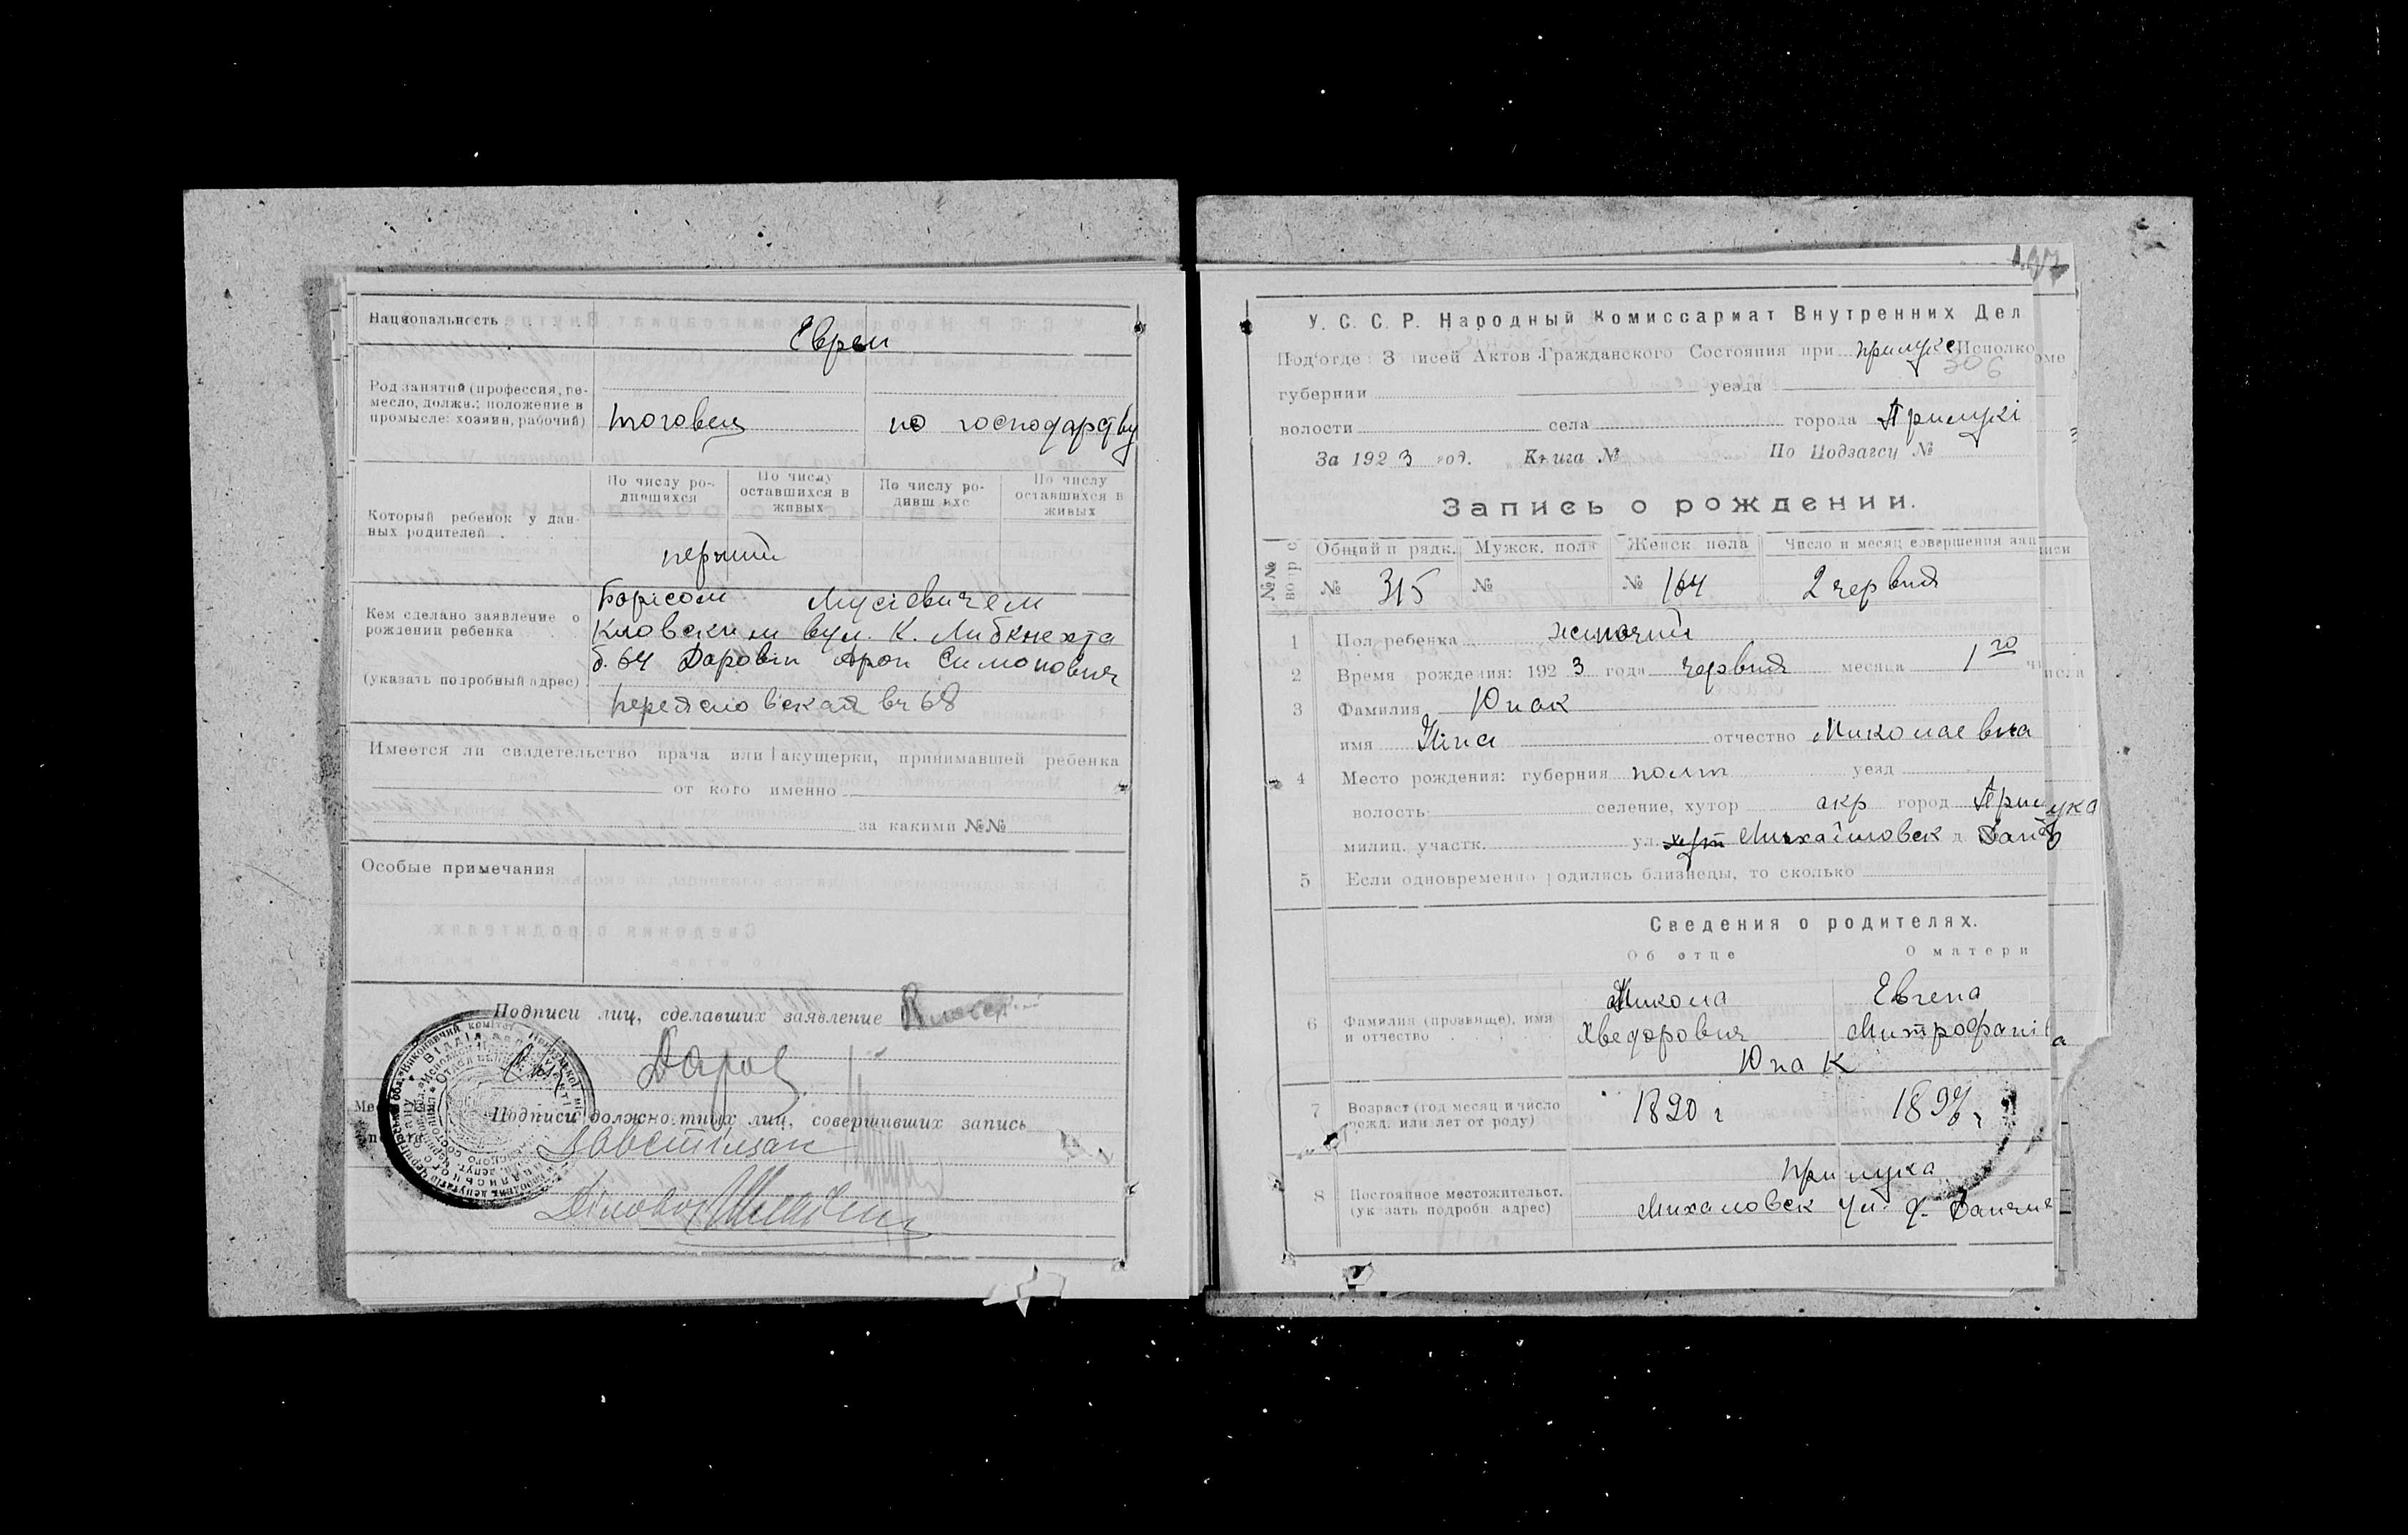 Национальность
Евреи
Род занятой (профессия, ре-
месло, должн.; положение в
промысле: хозяин, рабочий)
торговец
по господарству
По числу ро-
дившихся
По числу
оставшихся в
живых
По числу ро-
дивш ихс
По числу
оставшихся в
живых
Который ребенок у дан-
ных родителей
перший
Кем сделано заявление о
рождении ребенка
(указать подробный адрес)
Борисом Мусіевичем
вул. К. Либкнехта
б. 64 Арон Симонович
68
Имеется ли свидетельство врача или акушерки, принимавшей ребенка
от кого именно
за какими №№
Особые примечания
Подписи лиц, сделавших заявление
Подписи должностных лиц, совершивших запись
197
У. С. С. Р. Народный Комиссариат Внутренних Дел
Под'отде З писей Актов Гражданского Состояния при прилуке Исполкоме
306
губернии уезда
волости села города Прилукі
За 1923 год. Книга № По Подзагсу №
Запись о рождении.
№№ вопр с Общий п рядк. Мужск. пола Женск. пола Число и месяц совершения записи
№ 315 № № 164 2 червня
1 Пол ребенка жіночий
2 Время рождения: 1923 года червня месяца 1го числа
3 Фамилия Юпак
имя Ніна отчество Миколаевна
4 Место рождения: губерния полт уезд
волость селение, хутор окр город Прилука
милиц. участк. ул. хут Михайловск д.
5 Если одновременно родились близнецы, то сколько
Сведения о родителях.
Об отце О матери
6 Фамилия (прозвище), имя
и отчество
Микола
Хведорович
Евгена
Митрофанівa
Юпак
7 Возраст (год месяц и число
рожд. или лет от роду)
1890 г
1897 г
8 Постоянное местожительст.
(ук зать подробн адрес)
Прилука
Михаловск ул. д.